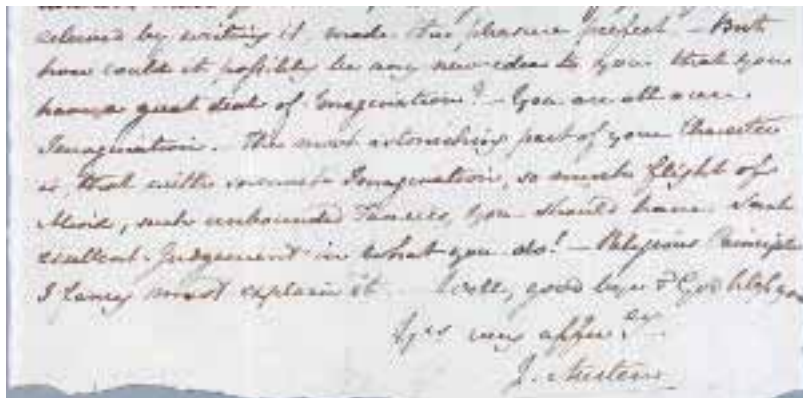 by writing it made the pleasure perfect. — But
how could it possibly be any new idea to you that you
have a great deal of Imagination? — You are all over
Imagination. The most astonishing part of your Character
is, that with so much Imagination, so much flight of
Mind, such unbounded Fancies, you should have such
excellent Judgement in what you do! — Religious Principle
I fancy must explain it. Well, good bye & God bless you
Yrs very affec:ly
J. Austen